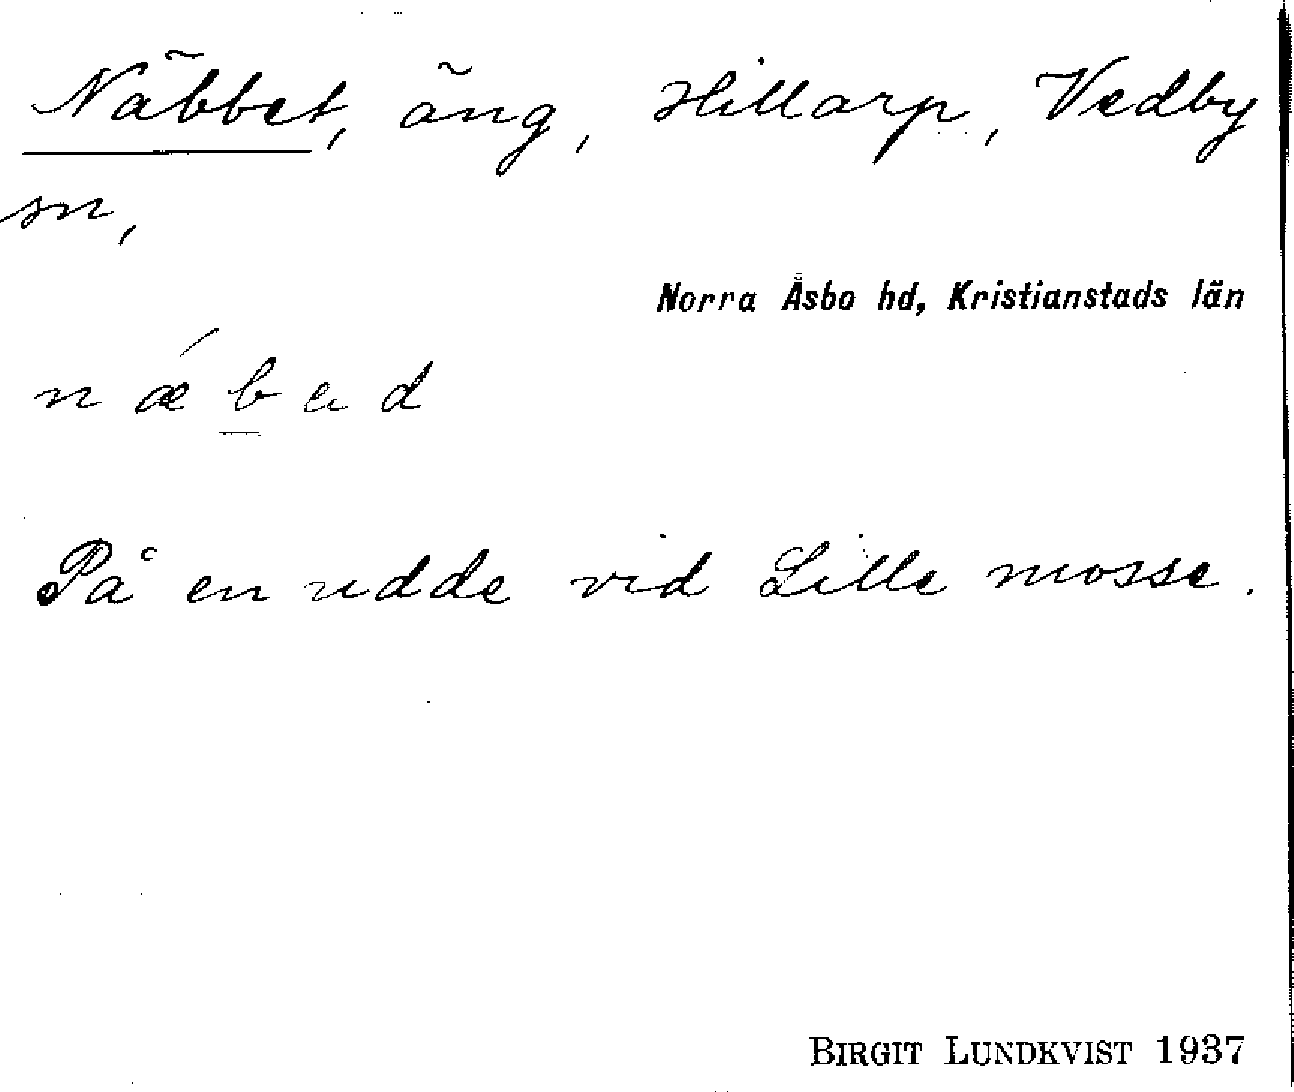 Näbbet, äng, Hillarp, Vedby
sn,
Norra Åsbo hd, Kristianstads län
nǽb̲ad
På en udde vid Lille mosse.
BIRGIT LUNDKVIST 1937